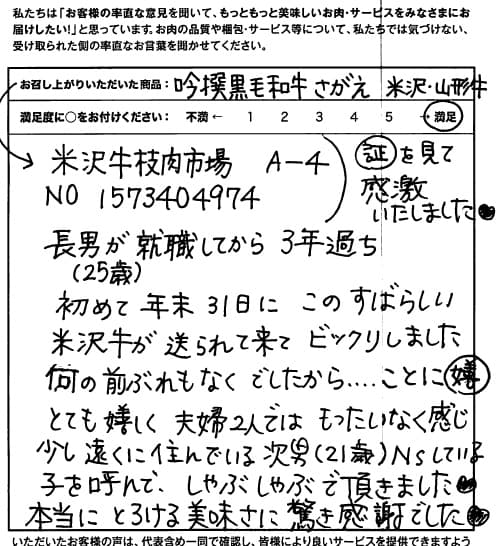 私たちは「お客様の率直な意見を聞いて、もっともっと美味しいお肉・サービスをみなさまにお
届けしたい!」と思っています。お肉の品質や梱包・サービス等について、私たちでは気づけない、
受け取られた側の率直なお言葉を聞かせてください。
お召し上がりいただいた商品: 吟撰黒毛和牛 さがえ 米沢・山形牛
満足度に○をお付けください: 不満 ← 1 2 3 4 5 → 満足
米沢牛枝肉市場 A-4
NO 1573404974
証を見て
感激
いたしました
長男が就職してから 3年過ち
(25歳)
初めて 年末 31日に このすばらしい
米沢牛が 送られて来て ビックリしました
何の前ぶれもなく でしたから‥‥ことに嬉
とても嬉しく 夫婦2人では もったいなく感じ
少し遠くに住んでいる 次男(21歳)Nsしている
子を呼んで、しゃぶしゃぶで頂きました
本当に とろける美味さに 驚き感謝でした
いただいたお客様の声は、代表含め一同で確認し、皆様により良いサービスを提供できますよう